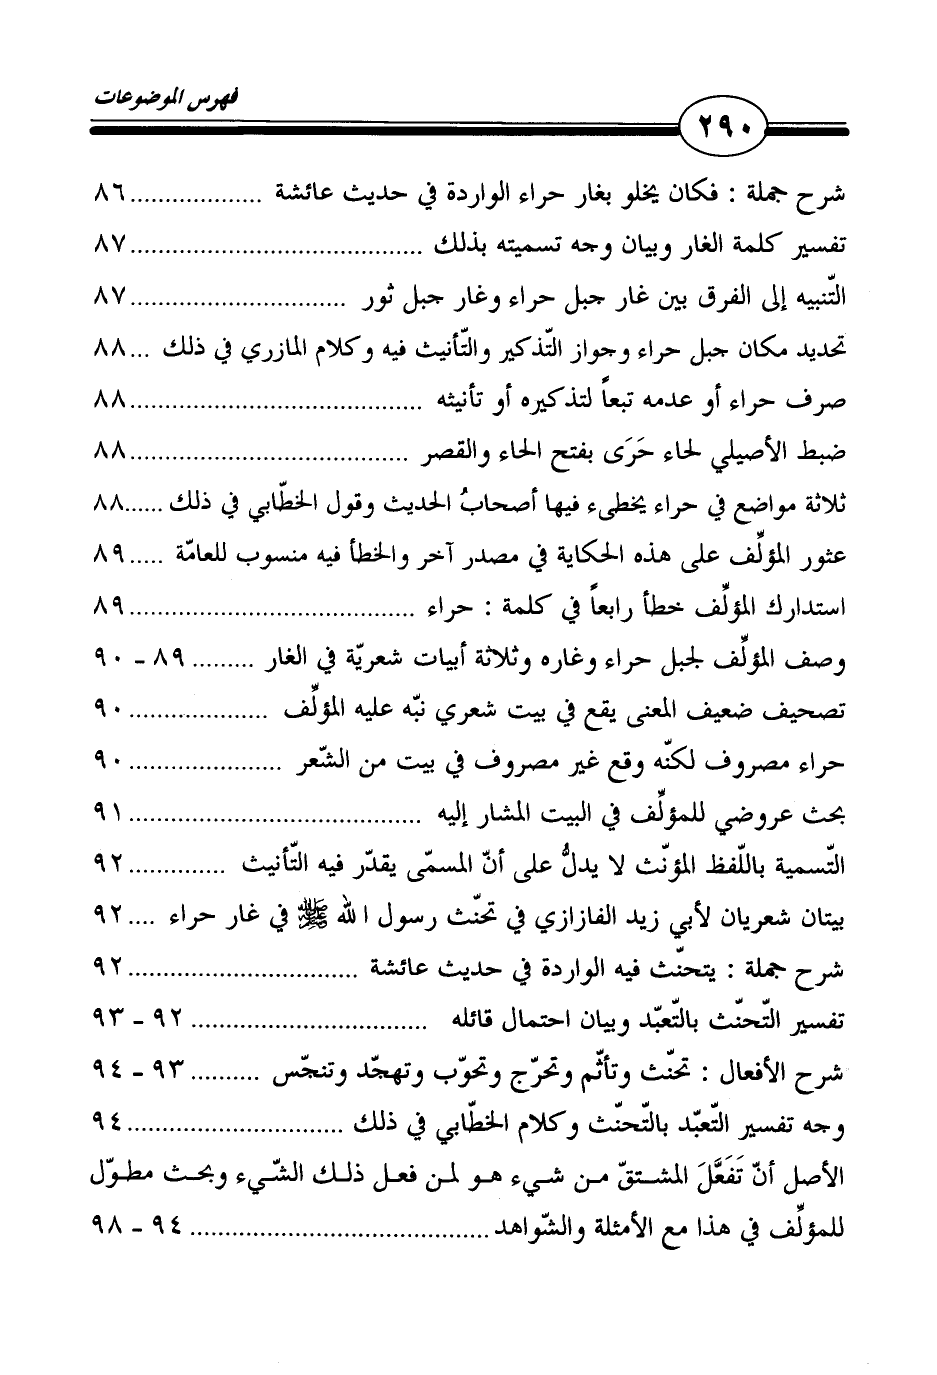 فهرس الموضوعات
٢٩٠
شرح جملة : فكان يخلو بغار حراء الواردة في حديث عائشة ................... ٨٦
تفسير كلمة الغار وبيان وجه تسميته بذلك .......................................... ٨٧
التّنبيه إلى الفرق بين غار جبل حراء وغار جبل ثور ............................... ٨٧
تحديد مكان جبل حراء وجواز التّذكير والتّأنيث فيه وكلام المازري في ذلك ... ٨٨
صرف حراء أو عدمه تبعاً لتذكيره أو تأنيثه .......................................... ٨٨
ضبط الأصيلي لحاء حَرَى بفتح الحاء والقصر ........................................ ٨٨
ثلاثة مواضع في حراء يخطىء فيها أصحابُ الحديث وقول الخطّابي في ذلك ...... ٨٨
عثور المؤلِّف على هذه الحكاية في مصدر آخر والخطأ فيه منسوب للعامّة ..... ٨٩
استدارك المؤلِّف خطأ رابعاً في كلمة : حراء ......................................... ٨٩
وصف المؤلِّف لجبل حراء وغاره وثلاثة أبيات شعريّة في الغار ......... ٨٩ - ٩٠
تصحيف ضعيف المعنى يقع في بيت شعري نبّه عليه المؤلِّف .................... ٩٠
حراء مصروف لكنّه وقع غير مصروف في بيت من الشّعر ...................... ٩٠
بحث عروضي للمؤلِّف في البيت المشار إليه .......................................... ٩١
التّسمية باللّفظ المؤنّث لا يدلُّ على أنّ المسمّى يقدّر فيه التّأنيث .............. ٩٢
بيتان شعريان لأبي زيد الفازازي في تحنّث رسول الله ﷺ في غار حراء .... ٩٢
شرح جملة : يتحنّث فيه الواردة في حديث عائشة ................................. ٩٢
تفسير التّحنّث بالتّعبّد وبيان احتمال قائله .................................. ٩٢ - ٩٣
شرح الأفعال : تحنّث وتأثّم وتحرّج وتحوّب وتهجّد وتنجّس .......... ٩٣ - ٩٤
وجه تفسير التّعبّد بالتّحنّث وكلام الخطّابي في ذلك ............................... ٩٤
الأصل أنّ تَفَعَّلَ المشتقّ من شيء هو لمن فعل ذلك الشّيء وبحث مطوّل
للمؤلِّف في هذا مع الأمثلة والشّواهد ........................................... ٩٤ - ٩٨